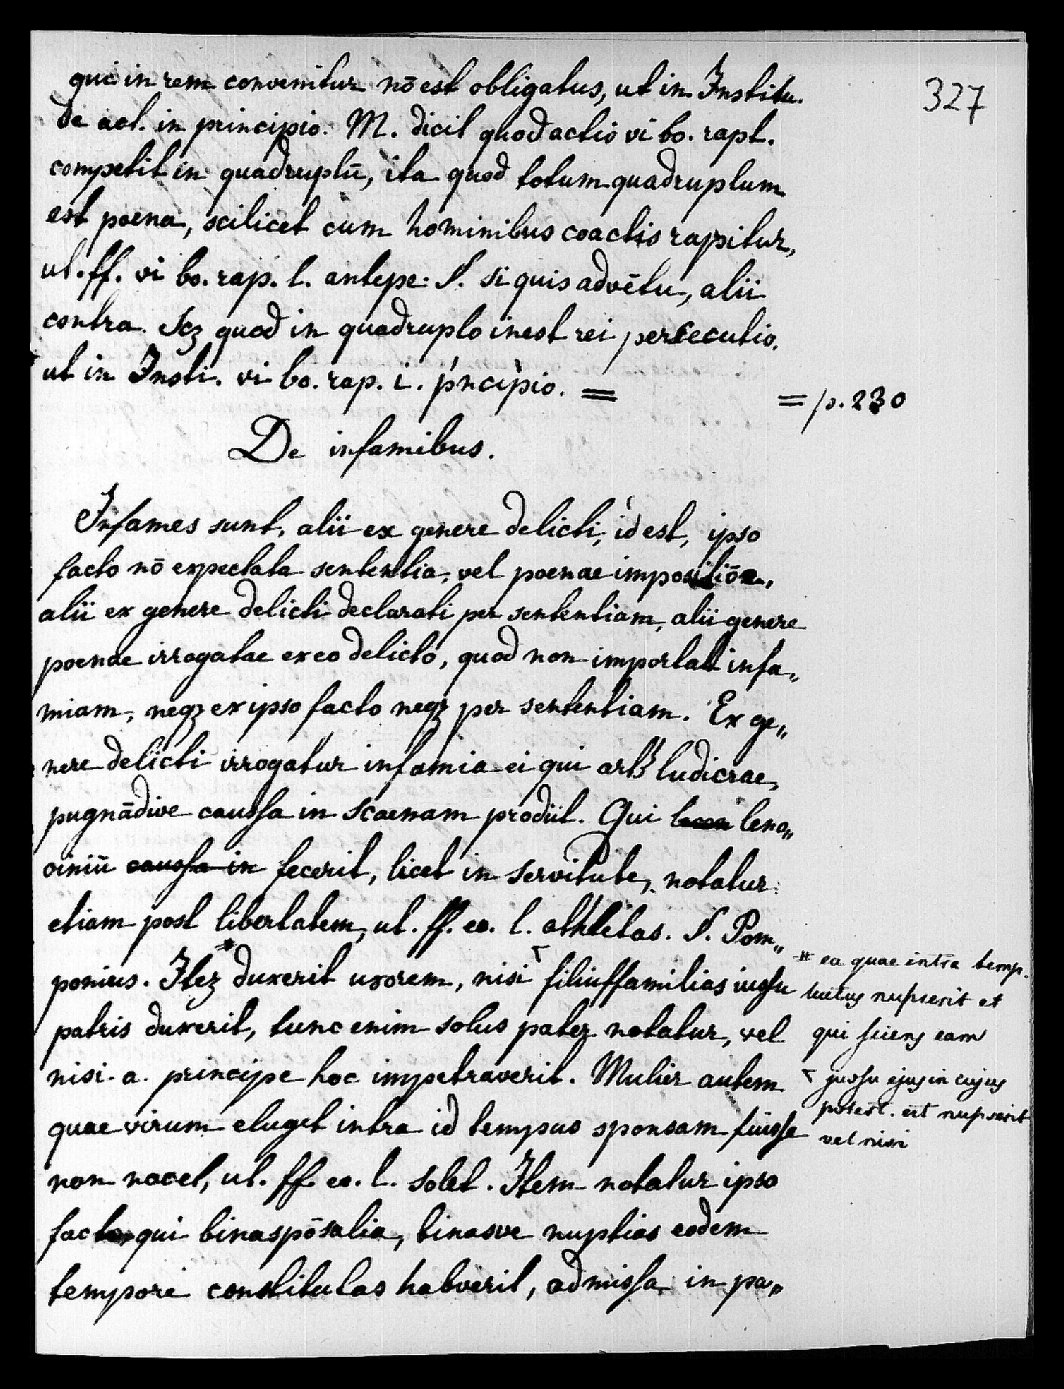 327
qui in rem convenitur nō est obligatus, ut in Institu.
de act. in principio. M. dicit quod actio vi bo. rapt.
competit in quadruplū, ita quod totum quadruplum
est poena, scilicet cum hominibus coactis rapitur,
ut. ff. vi bo. rap. l. antepe. S. si quis advētu, alii
contra. Scz quod in quadruplo inest rei persecutio.
ut in Insti. vi bo. rap. i. p'ncipio. =
= p. 230
De infamibus.
Infames sunt, alii ex genere delicti, id est, ipso
facto nō expectata sententia, vel poenae impositiōe,
alii ex genere delicti declarati per sententiam, alii genere
poenae irrogatae ex eo delicto, quod non importat infa„
miam, neqz ex ipso facto neqz per sententiam. Ex ge„
nere delicti irrogatur infamia ei qui art3 ludicrae,
pugnādive caussa in scaenam prodiit. Qui leno„
ciniū caussa in fecerit, licet in servitute, notatur
etiam post libertatem, ut. ff. eo. l. athletas. S. Pom„
ponius. Itez * duxerit uxorem, nisi filiusfamilias iussu
patris duxerit, tunc enim solus pater notatur, vel
nisi a principe hoc impetraverit. Mulier autem
quae virum eluget intra id tempus sponsam fuisse
non nocet, ut. ff. eo. l. solet. Item notatur ipso
facto, qui binaspōsalia, binasve nuptias eodem
tempore constitutas habverit, admissa in pa„
* ea quae intra temp.
luctus nupserit et
qui sciens eam
jussu ejus in cujus
potest. est nupserit
vel nisi